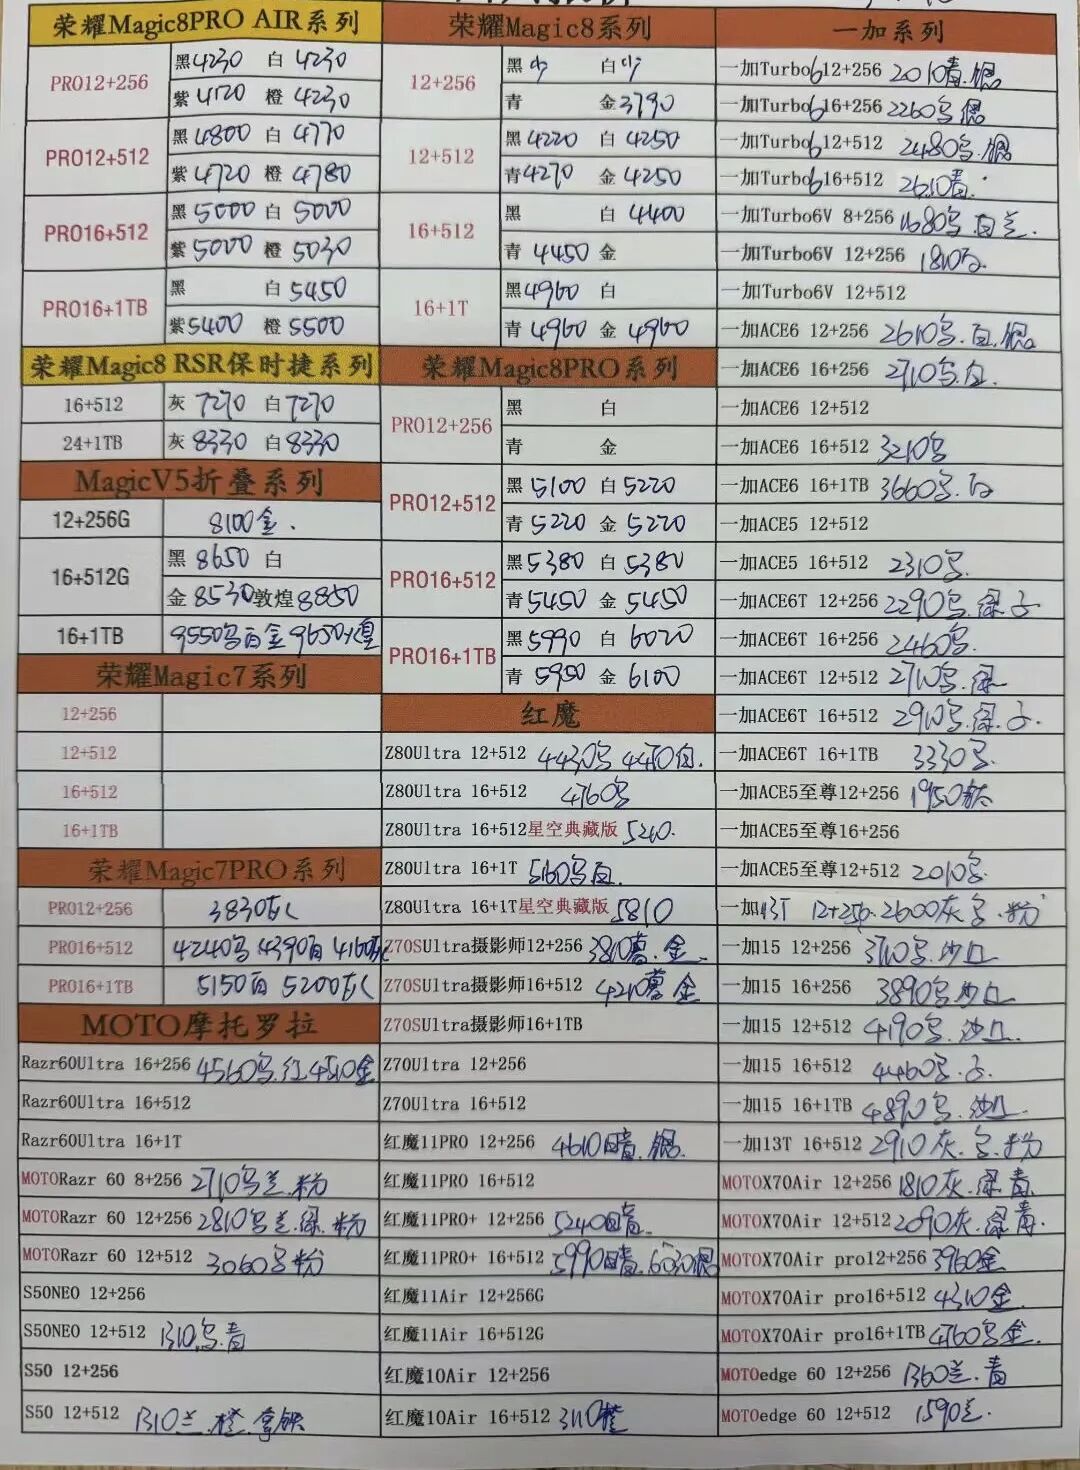 荣耀Magic8PRO AIR系列
PRO12+256 黑4230 白 4230
紫4120 橙 4230
PRO12+512 黑 4800 白 4770
紫 4720 橙 4780
PRO16+512 黑 5000 白 5000
紫 5000 橙 5030
PRO16+1TB 黑 白 5450
紫 5400 橙 5500
荣耀Magic8 RSR保时捷系列
16+512 灰 7270 白 7270
24+1TB 灰 8330 白 8330
MagicV5折叠系列
12+256G 8100金.
16+512G 黑 8650 白
金 8530 敦煌 8850
16+1TB 9550乌白金 9650
荣耀Magic7系列
12+256
12+512
16+512
16+1TB
荣耀Magic7PRO系列
PRO12+256 3830灰
PRO16+512 4240乌 4390白 4160灰
PRO16+1TB 5150白 5200灰
MOTO摩托罗拉
Razr60Ultra 16+256 4560乌.红 4510金
Razr60Ultra 16+512
Razr60Ultra 16+1T
MOTORazr 60 8+256 2710乌兰.粉
MOTORazr 60 12+256 2810乌兰.绿.粉
MOTORazr 60 12+512 3060乌粉
S50NEO 12+256
S50NEO 12+512 1310乌.青
S50 12+256
S50 12+512 1310兰.橙.拿铁
荣耀Magic8系列
12+256 黑 白
青 金 3790
12+512 黑 4220 白 4250
青 4270 金 4250
16+512 黑 白 4400
青 4450 金
16+1T 黑 4960 白
青 4960 金 4960
荣耀Magic8PRO系列
PRO12+256 黑 白
青 金
PRO12+512 黑 5100 白 5220
青 5220 金 5220
PRO16+512 黑 5380 白 5380
青 5450 金 5450
PRO16+1TB 黑 5990 白 6020
青 5950 金 6100
红魔
Z80Ultra 12+512 4430乌 4470白.
Z80Ultra 16+512 4760乌
Z80Ultra 16+512星空典藏版 5260.
Z80Ultra 16+1T 5160乌白.
Z80Ultra 16+1T星空典藏版 5810
Z70SUltra摄影师12+256 3810 金.
Z70SUltra摄影师16+512 4210 金
Z70SUltra摄影师16+1TB
Z70Ultra 12+256
Z70Ultra 16+512
红魔11PRO 12+256 4610暗.银.
红魔11PRO 16+512
红魔11PRO+ 12+256 5240暗.
红魔11PRO+ 16+512 5990暗.6030银
红魔11Air 12+256G
红魔11Air 16+512G
红魔10Air 12+256
红魔10Air 16+512 3110橙
一加系列
一加Turbo6 12+256 2010青.银
一加Turbo6 16+256 2260乌银
一加Turbo6 12+512 2480乌.银
一加Turbo6 16+512 2610青.
一加Turbo6V 8+256 1680乌.白兰.
一加Turbo6V 12+256 1810白.
一加Turbo6V 12+512
一加ACE6 12+256 2610乌.白.银
一加ACE6 16+256 2710乌.白.
一加ACE6 12+512
一加ACE6 16+512 3210乌
一加ACE6 16+1TB 3660乌.白
一加ACE5 12+512
一加ACE5 16+512 2310乌.
一加ACE6T 12+256 2290乌.绿.子
一加ACE6T 16+256 2460乌.
一加ACE6T 12+512 2710乌.绿
一加ACE6T 16+512 2910乌.绿.子.
一加ACE6T 16+1TB 3330乌.
一加ACE5至尊12+256 1950钛
一加ACE5至尊16+256
一加ACE5至尊12+512 2010乌.
一加13T 12+256.2600灰乌.粉
一加15 12+256 3710乌.沙丘
一加15 16+256 3890乌沙丘
一加15 12+512 4190乌.沙丘.
一加15 16+512 4460乌.子.
一加15 16+1TB 4890乌.沙丘.
一加13T 16+512 2910灰.乌.粉
MOTOX70Air 12+256 1810灰.绿.青
MOTOX70Air 12+512 2090灰.绿青.
MOTOX70Air pro12+256 3960金
MOTOX70Air pro16+512 4310金.
MOTOX70Air pro16+1TB 4760乌金.
MOTOedge 60 12+256 1360兰.青
MOTOedge 60 12+512 1590兰.